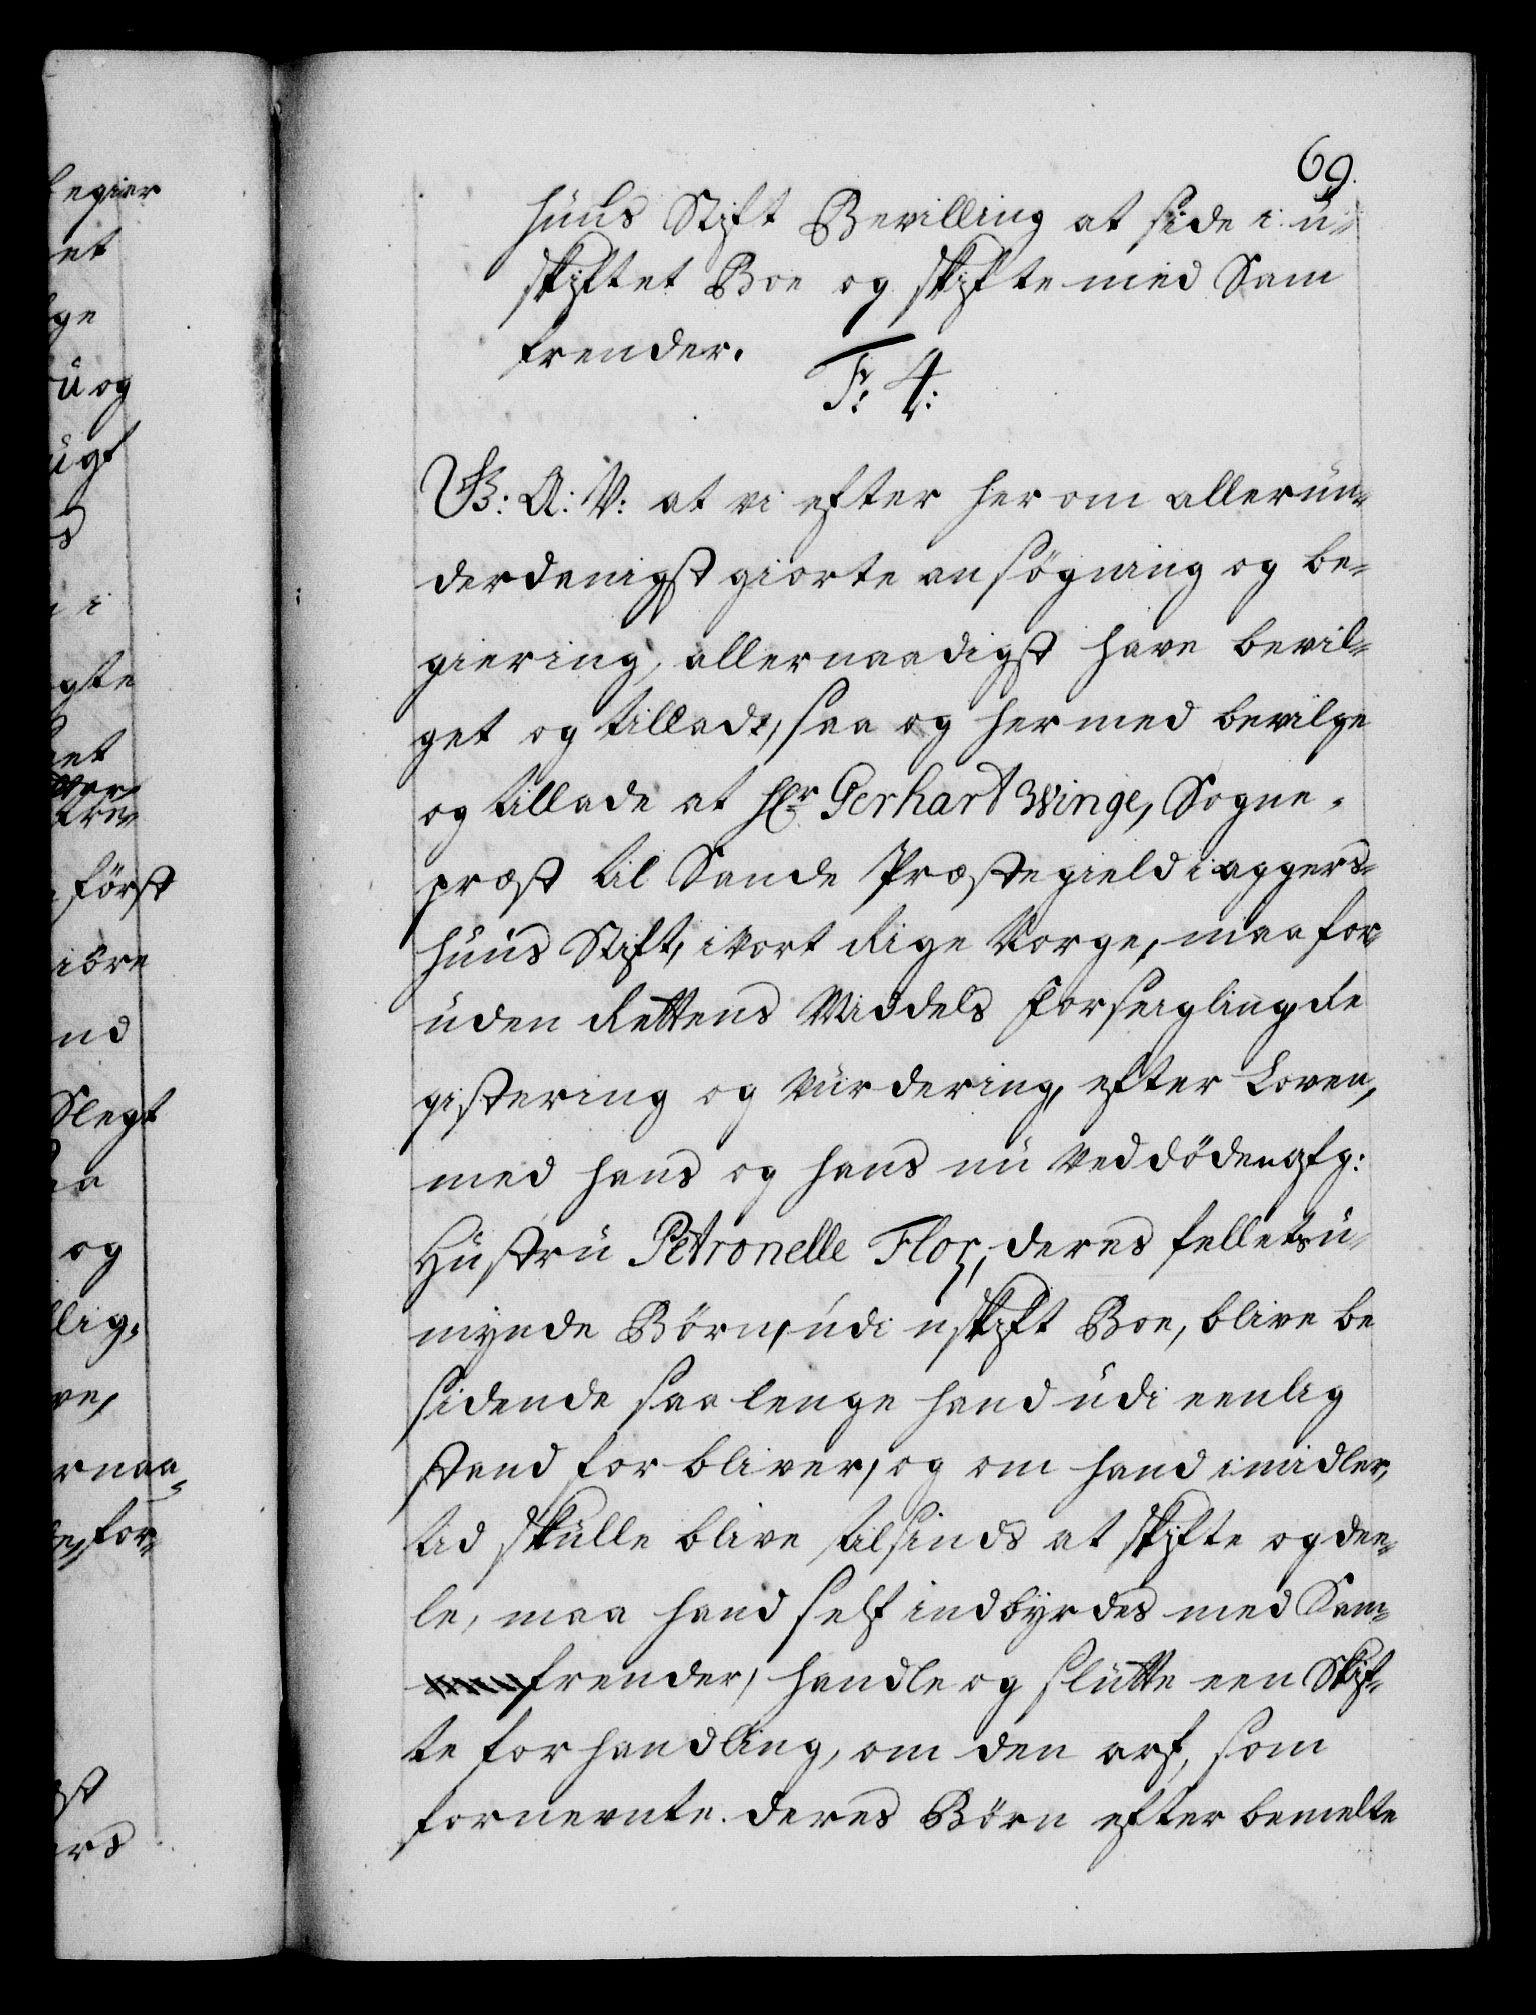 69.
huus Stift Bevilling at side i u-
skiftet Boe og skifte med Sam
frender.
F: 4:
G: A: V: at vi efter her om allerun-
derdanigst giorte ansögning og be-
giering, allernaadigst have bevil-
get og tilladt, saa og hermed bevilge
og tillade at Hr Gerhart Winge, Sogne-
præst til Sande Præstegield i Aggers-
huus Stift, i Vort Rige Norge, maa for
uden Rettens Middels Forseigling, Re
gistering og Vurdering, efter Loven,
med hans og hans nu ved döden afg:
Hustru Petronelle Flor, deres felles u-
mynde Börn, udi uskift Boe, blive be
sidende saa lenge hand udi eenlig
stand forbliver, og om hand imidler-
tid skulle blive tilsinds at skifte og dee-
le, maa hand self indbyrdes med Sam-
frender, handle og slutte een Skif-
te forhandling, om den arf, som
fornevnte deres Börn efter bemelte
legier
et
lge
u og
ügt
i
gte
et
först
iöre
nd
Slegt
aa
og
lig,
ve,
rnaa-
for-
st
ers